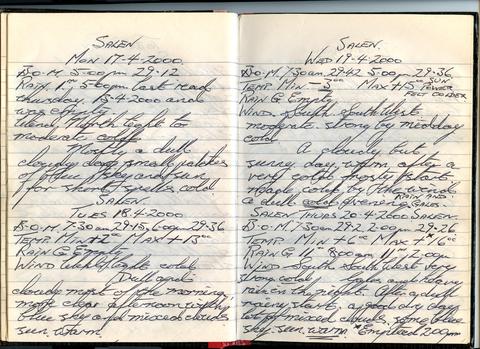 SALEN.
MON 17-4-2000.
B.O.M. 5-00pm 29-12
RAIN. 5-00pm last read
thursday. 13-4-2000 and
was
then. North light to
moderate cold.
Mostly a dull
cloudy day small patches
of blue sky and sun
for short spells cold
SALEN.
TUES 18.4-2000.
B.O.M. 7-30am 29-15, 6-00pm 29-36
TEMP. MIN +2° MAX +13°
RAIN G Empty
WIND light cold
Dull and
cloudy most of the morning,
more clear afternoon with
blue sky and mixed clouds
sun. warm.
SALEN.
WED 19-4-2000
B.O.M. 7.30am 29-42 5-00pm 29-36.
TEMP MIN -3° MAX +15° SUN.
FELT COLDER
RAIN G Empty.
WIND. South South West
moderate strong by midday
cold
A cloudy but
sunny day, warm after a
very cold frosty start
made cold by the wind
a dull cold evening RAIN AND GALES.
SALEN THURS 20-4-2000 SALEN.
B.O.M. 7-30am 29-2 2-00pm 29-26
TEMP. MIN +6° MAX +16°
RAIN G 8-00am 2-00pm
WIND South South West very
strong cold. Gales and heavy
rain in the night. After a dull
rainy start, a good dry day
lot of mixed clouds, some blue
sky. sun. warm. *Emptied 2-00pm